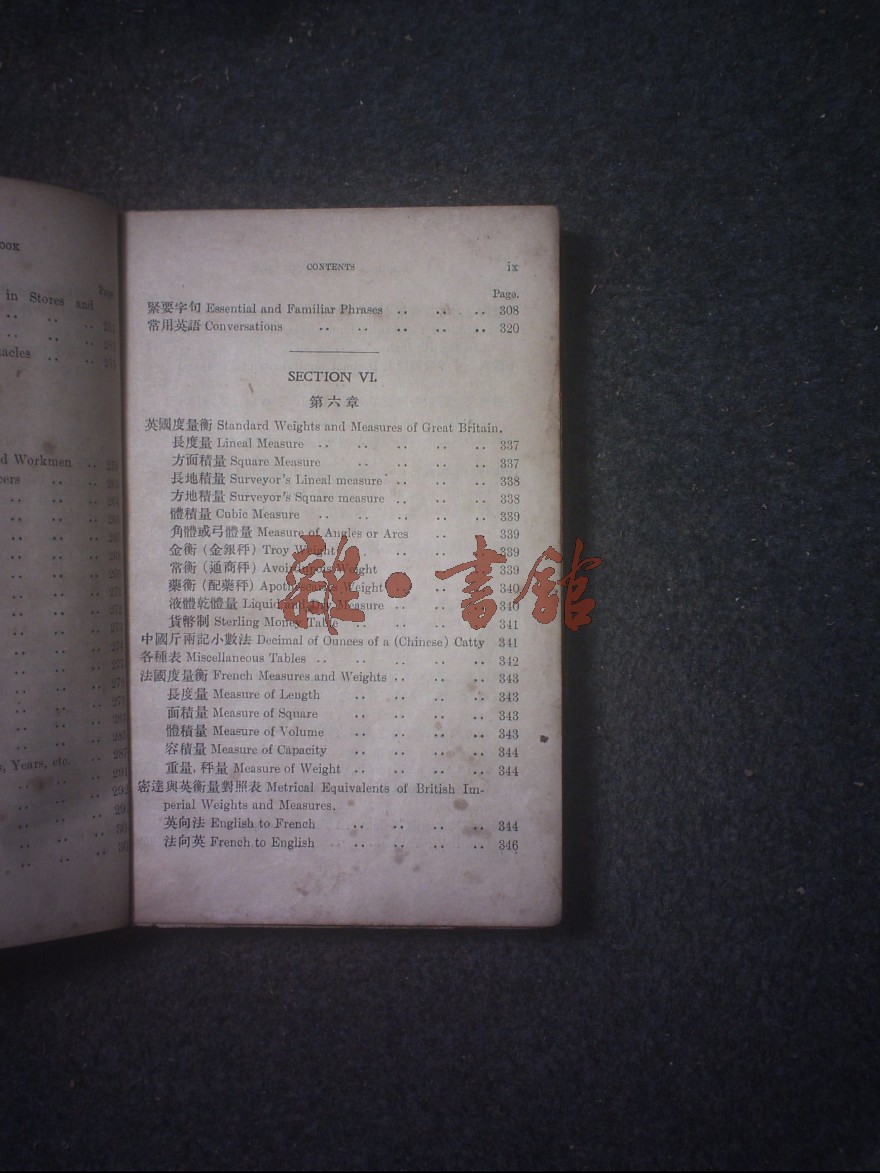 OOK
Page
in Stores and
acles
d Workmen
cers
s, Years, etc.
CONTENTS ix
Page.
緊要字句 Essential and Familiar Phrases .. .. .. 308
常用英語 Conversations .. .. .. .. .. 320
SECTION VI.
第六章
英國度量衡 Standard Weights and Measures of Great Britain.
長度量 Lineal Measure .. .. .. .. .. 337
方面積量 Square Measure .. .. .. .. 337
長地積量 Surveyor's Lineal measure .. .. .. 338
方地積量 Surveyor's Square measure .. .. .. 338
體積量 Cubic Measure .. .. .. .. .. 339
角體或弓體量 Measure of Angles or Arcs .. .. 339
金衡 (金銀秤) Troy Weight .. .. .. 339
常衡 (通商秤) Avoirdupois Weight .. .. 339
藥衡 (配藥秤) Apothecaries Weight .. .. .. 340
液體乾體量 Liquid and Dry Measure .. .. .. 340
貨幣制 Sterling Money Table .. .. .. .. 341
中國斤兩記小數法 Decimal of Ounces of a (Chinese) Catty 341
各種表 Miscellaneous Tables .. .. .. .. .. 342
法國度量衡 French Measures and Weights .. .. .. 343
長度量 Measure of Length .. .. .. .. 343
面積量 Measure of Square .. .. .. .. 343
體積量 Measure of Volume .. .. .. .. 343
容積量 Measure of Capacity .. .. .. .. 344
重量, 秤量 Measure of Weight .. .. .. .. 344
密達與英衡量對照表 Metrical Equivalents of British Im-
perial Weights and Measures.
英向法 English to French .. .. .. .. 344
法向英 French to English .. .. .. 346
雜·書館